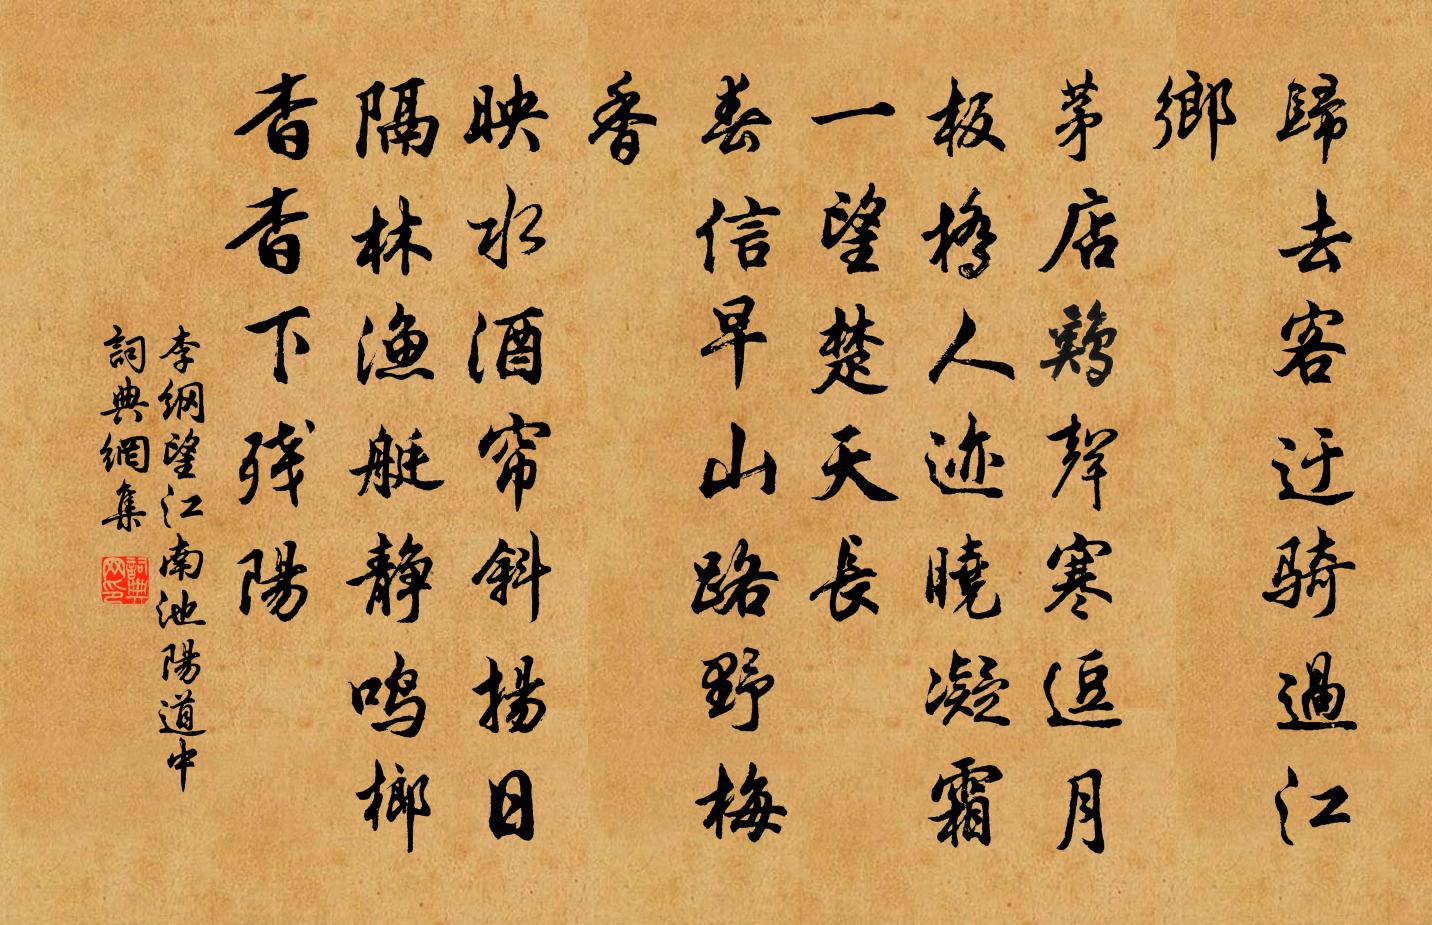 歸去客迂騎過江
鄉
茅店鷄聲寒逗月
板橋人迹曉凝霜
一望楚天長
春信早山路野梅
香
映水酒帘斜揚日
隔林漁艇靜鳴榔
杳杳下残陽
李綱望江南池陽道中
詞典網集
詞典网印